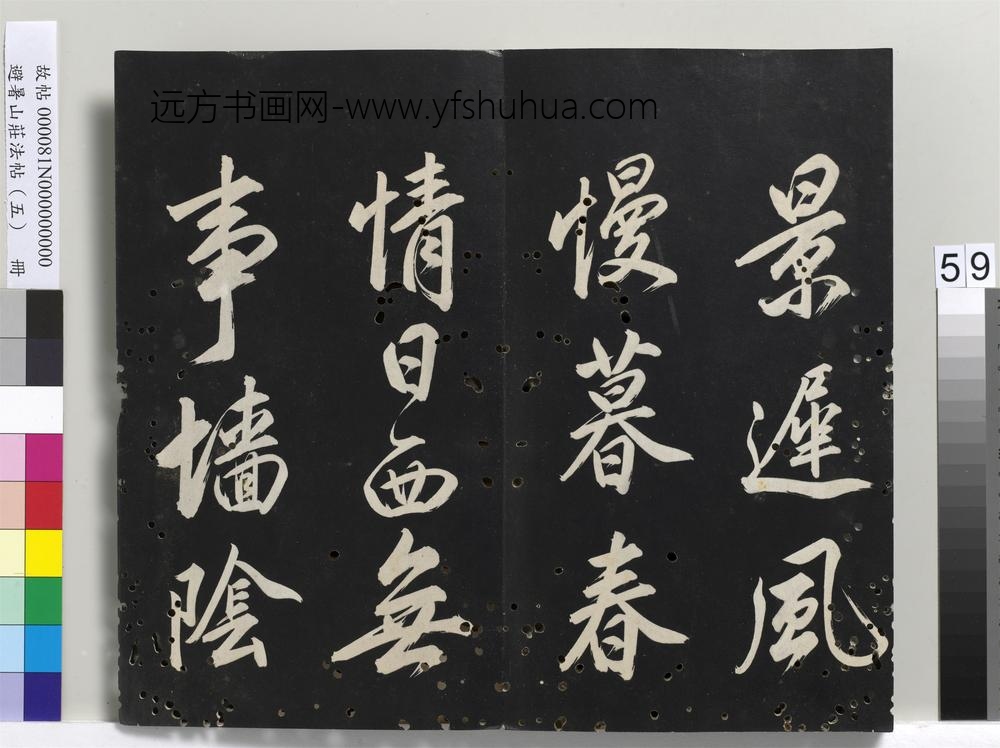 远方书画网-www.yfshuhua.com
景遲風
慢暮春
情日西無
事墙陰
故帖 000081N000000000
避暑山莊法帖（五） 冊
59